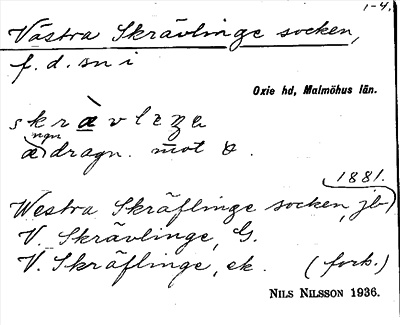 1-4.
Västra Skrävlinge socken,
f. d. sn i
Oxie hd, Malmöhus län.
ngn
dragn. mot
1881.
Westra Skräflinge socken, jb
V. Skrävlinge, G.
V. Skräflinge, ek. (fork.)
NILS NILSSON 1936.